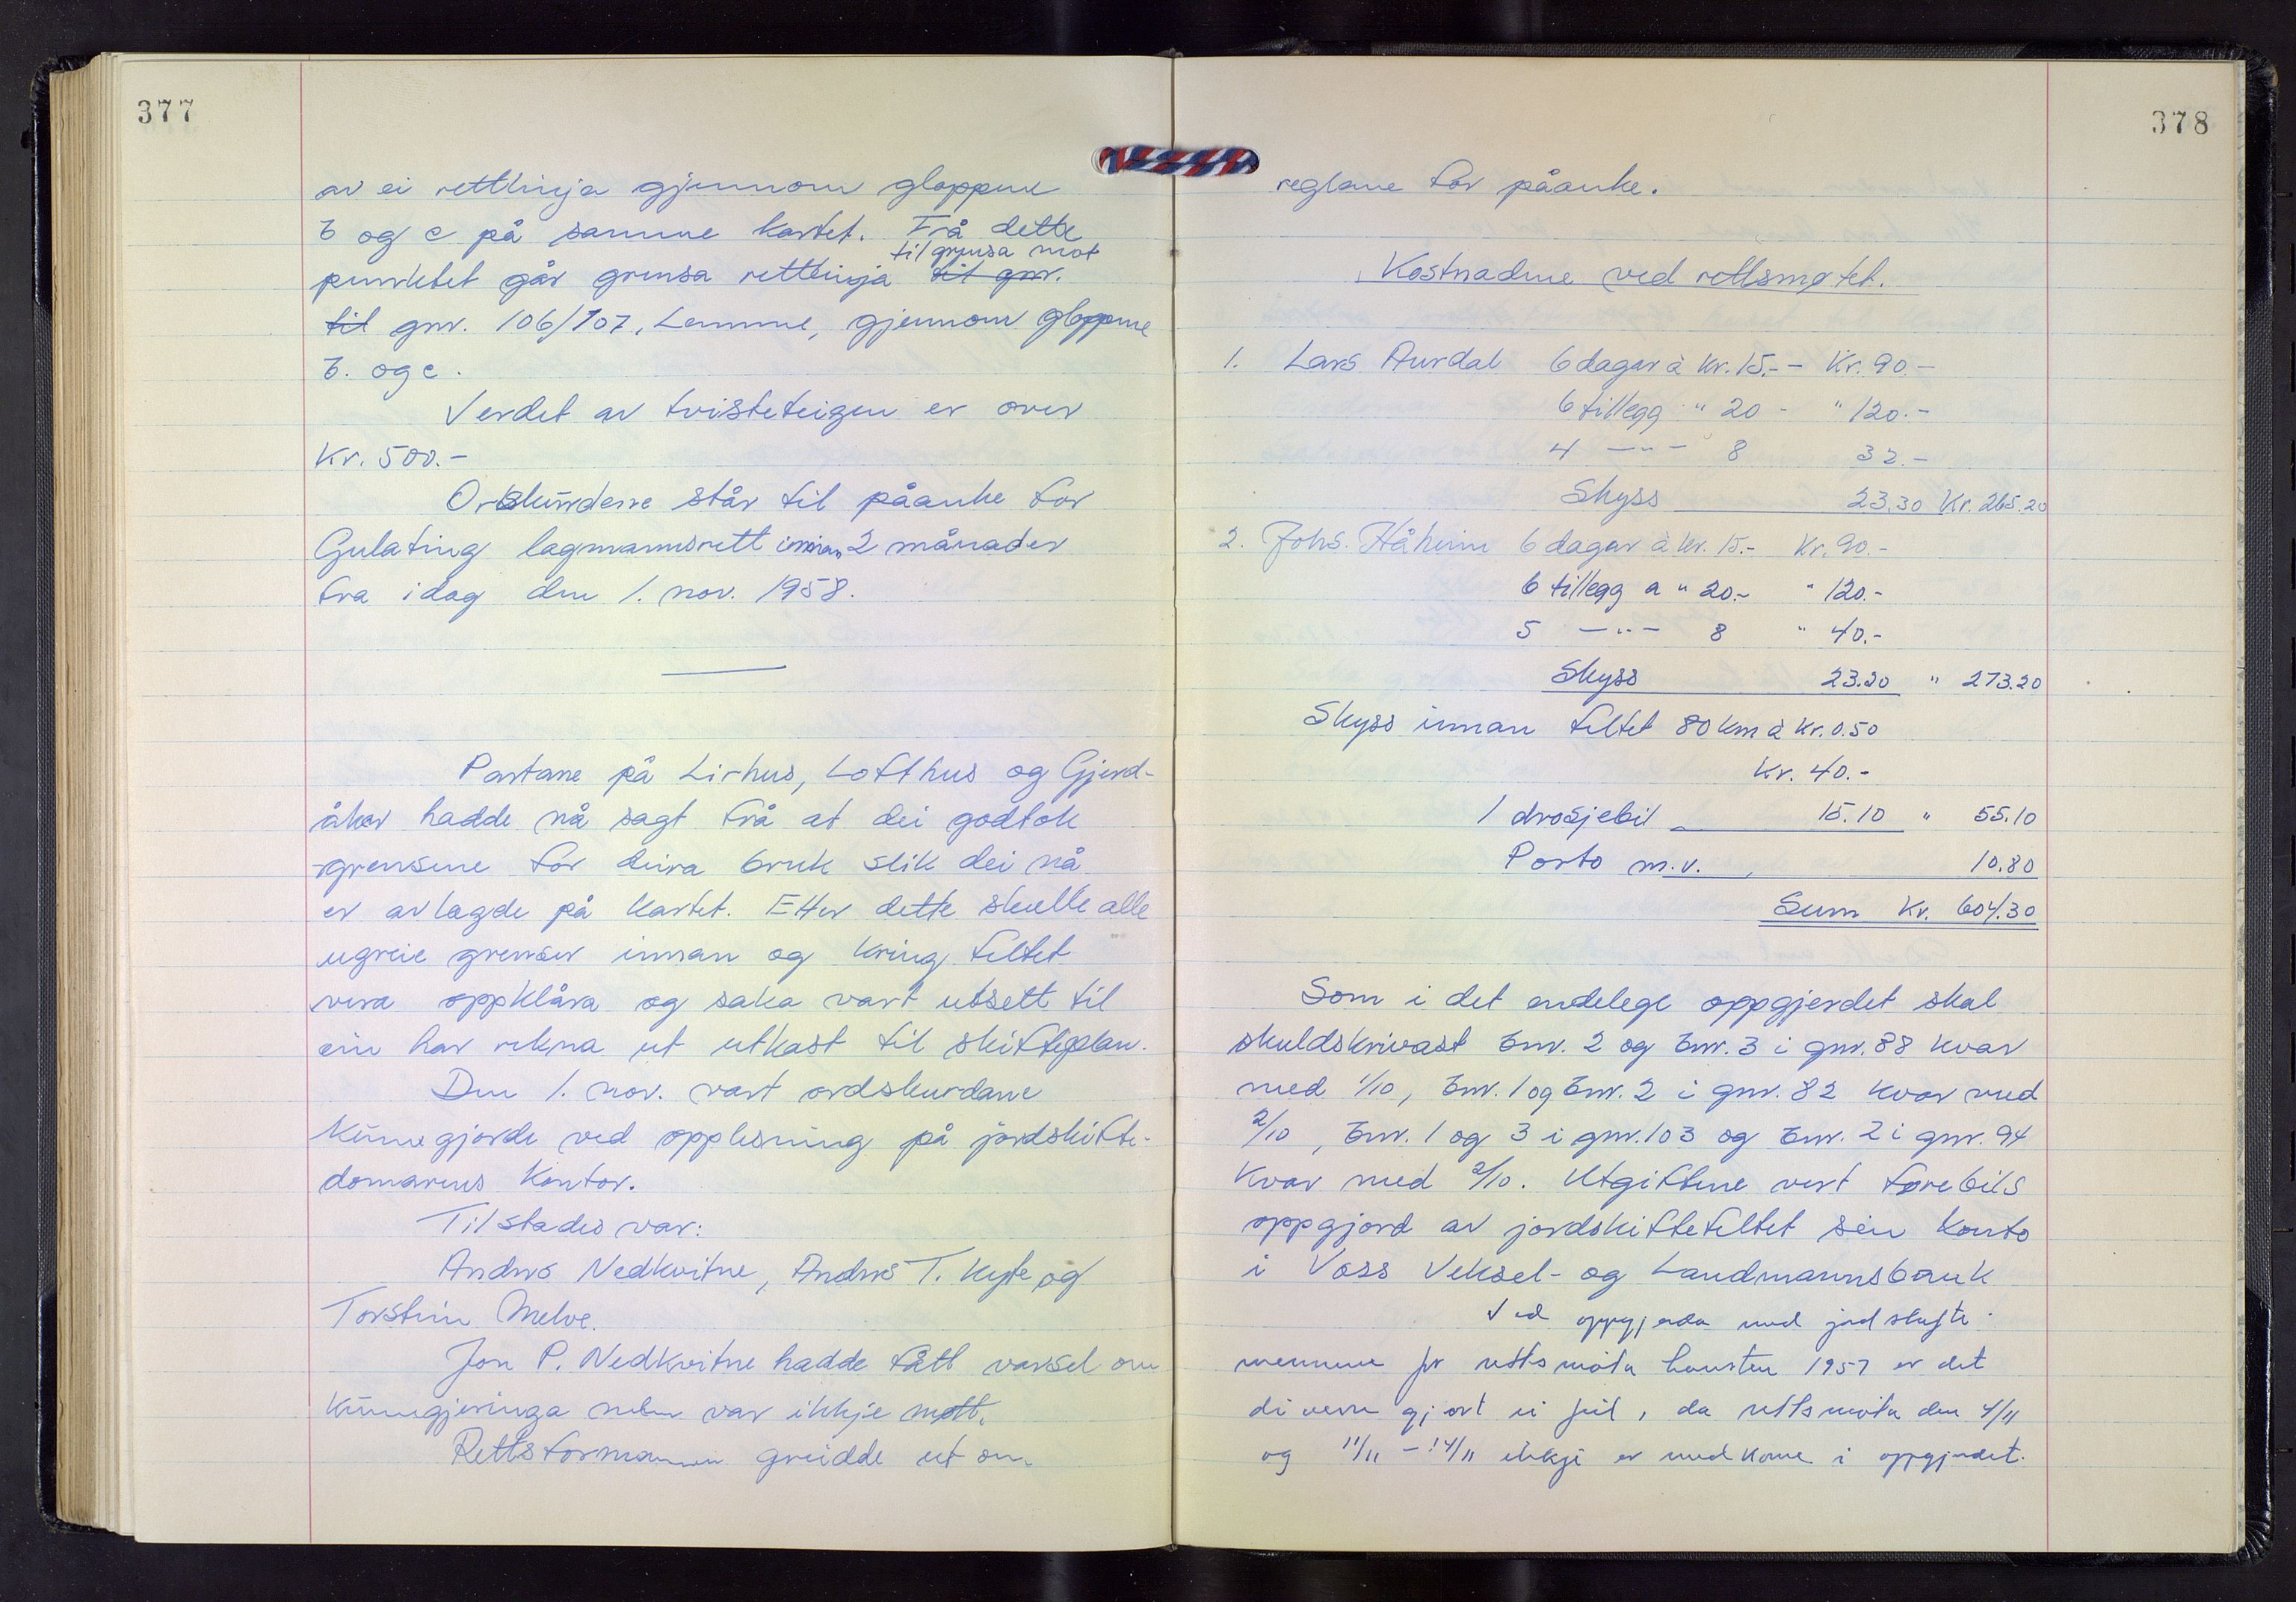 377
av ei rettlinja gjennom gloppene
b og c på samme kartet. Frå dette
til grensa mot
punktet går grensa rettlinja til gnr.
til gnr. 106/107, Lemme, gjennom gloppene
b. og c.
Verdet av tvisteteigen er over
Kr. 500.-
Ordskurdene står til påanke for
Gulating lagmannsrett innan 2 månader
fra idag den 1. nov. 1958.
Partane på Lirhus, Lofthus og Gjerd-
åker hadde nå sagt frå at dei godtok
grensene for deira bruk slik dei nå
er avlagde på kartet. Etter dette skulle alle
ugreie grenser innan og kring feltet
vera oppklåra og saka vart utsett til
ein har rekna ut utkast til skifteplan.
Den 1. nov. vart ordskurdane
kunngjorde ved opplesning på jordskifte-
domarens kontor.
Tilstades var:
Anders Nedkvitne, Anders T. Kyte og
Torstein Melve.
Jon P. Nedkvitne hadde fått varsel om
kunngjeringa men var ikkje møtt.
Rettsformannen greidde ut om
378
reglane for påanke.
Kostnadene ved rettsmøtet.
1. Lars Aurdal 6 dagar à kr. 15.- - Kr. 90.-
6 tillegg " 20 - " 120.-
4 -"- 8 32.-
Skyss 23.30 Kr. 265.20
2. Johs. Håheim 6 dagar à kr. 15.- Kr. 90.-
6 tillegg a " 20.- " 120.-
5 -"- 8 " 40.-
Skyss 23.20 " 273.20
Skyss innan feltet 80 km à kr. 0.50
Kr. 40.-
1 drosjebil 15.10 " 55.10
Porto m.v. 10.80
Sum Kr. 604.30
Som i det endelege oppgjerdet skal
skuldskrivast bnr. 2 og bnr. 3 i gnr. 88 kvar
med 1/10, bnr. 1 og bnr. 2 i gnr. 82 kvar med
2/10, bnr. 1 og 3 i gnr. 103 og bnr. 2 i gnr. 94
kvar med 2/10. Utgiftene vert førebils
oppgjord av jordskiftefeltet sin konto
i Voss Veksel- og Landmannsbank
Ved oppgjerda med jordskifte-
mennene for rettsmøta hausten 1957 er det
diverre gjort ei feil, da rettsmøta den 4/11
og 11/11 - 14/11 ikkje er medkome i oppgjerdet.